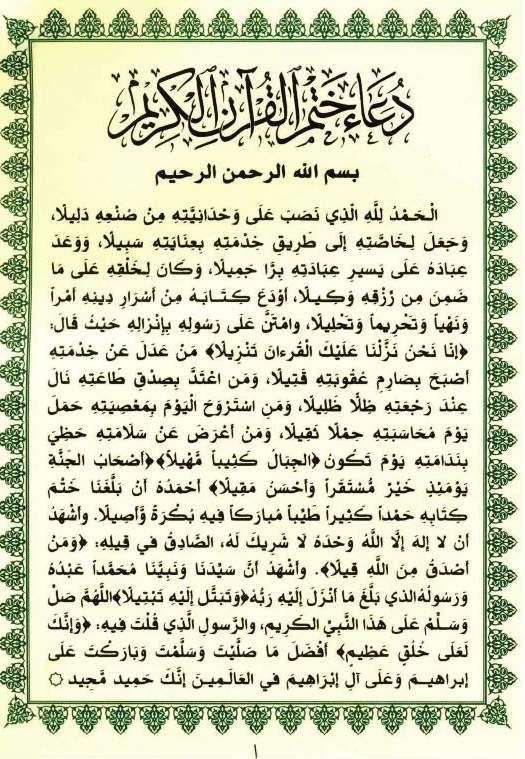 دُعَاءُ خَتْمِ ٱلْقُرْآنِ ٱلْكَرِيمِ
بسم الله الرحمن الرحيم
الْحَمْدُ لِلَّهِ الَّذِي نَصَبَ عَلَى وَحْدَانِيَّتِهِ مِنْ صُنْعِهِ دَلِيلًا،
وَجَعَلَ لِخَاصَّتِهِ إِلَى طَرِيقِ خِدْمَتِهِ بِعِنَايَتِهِ سَبِيلًا، وَوَعَدَ
عِبَادَهُ عَلَى يَسِيرِ عِبَادَتِهِ بِرًّا جَمِيلًا، وَكَانَ لِخَلْقِهِ عَلَى مَا
ضَمِنَ مِن رِزْقِهِ وَكِيلًا، أَوْدَعَ كِتَابَهُ مِنْ أَسْرَارِ دِينِهِ أَمْراً
وَنَهْياً وَتَحْرِيماً وَتَحْلِيلًا، وامْتَنَّ عَلَى رَسُولِهِ بِإِنْزَالِهِ حَيْثُ قَالَ:
﴿إِنَّا نَحْنُ نَزَّلْنَا عَلَيْكَ الْقُرءانَ تَنْزِيلًا﴾ مَنْ عَدَلَ عَنْ خِدْمَتِهِ
أَصْبَحَ بِصَارِمِ عُقُوبَتِهِ قَتِيلًا، وَمَنِ اعْتَدَّ بِصِدْقِ طَاعَتِهِ نَالَ
عِنْدَ رَجْعَتِهِ ظِلًّا ظَلِيلًا، وَمَنِ اسْتَرْوَحَ الْيَوْمَ بِمَعْصِيَتِهِ حَمَلَ
يَوْمَ مُحَاسَبَتِهِ حِمْلًا ثَقِيلًا، وَمَنْ أَعْرَضَ عَنْ سَلَامَتِهِ حَظِيَ
بِنَدَامَتِهِ يَوْمَ تَكُونُ ﴿الجِبَالُ كَثِيباً مَّهِيلاً﴾ ﴿أَصْحَابُ الجَنَّةِ
يَوْمَئِذٍ خَيْرٌ مُّسْتَقَرّاً وَأَحْسَنُ مَقِيلًا﴾ أَحْمَدُهُ أَنْ بَلَّغَنَا خَتْمَ
كِتَابِهِ حَمْداً كَثِيراً طَيِّباً مُبَارَكاً فِيهِ بُكْرَةً وَّأَصِيلًا. وأَشْهَدُ
أَنْ لا إلهَ إِلَّا اللَّهُ وَحْدَهُ لَا شَرِيكَ لَهُ، الصَّادِقُ في قِيلِهِ: ﴿وَمَنْ
أَصْدَقُ مِنَ اللَّهِ قِيلًا﴾. وأَشْهَدُ أَنَّ سَيِّدَنَا وَنَبِيَّنَا مُحَمَّداً عَبْدُهُ
وَرَسُولُهُ الذي بَلَّغَ مَا أَنْزَلَ إِلَيْهِ رَبُّهُ ﴿وَتَبَتَّلْ إِلَيْهِ تَبْتِيلًا﴾ اللَّهُمَّ صَلِّ
وَسَلِّمْ عَلَى هَذَا النَّبِيِّ الكَرِيمِ، والرَّسولِ الَّذِي قُلْتَ فِيهِ: ﴿وَإِنَّكَ
لَعَلَى خُلُقٍ عَظِيمٍ﴾ أَفْضَلَ مَا صَلَّيْتَ وَسَلَّمْتَ وَبَارَكْتَ عَلَى
إبراهيمَ وَعَلَى آلِ إِبْرَاهِيمَ في العَالَمِينَ إنَّكَ حَمِيد مَّجِيد ۞
١